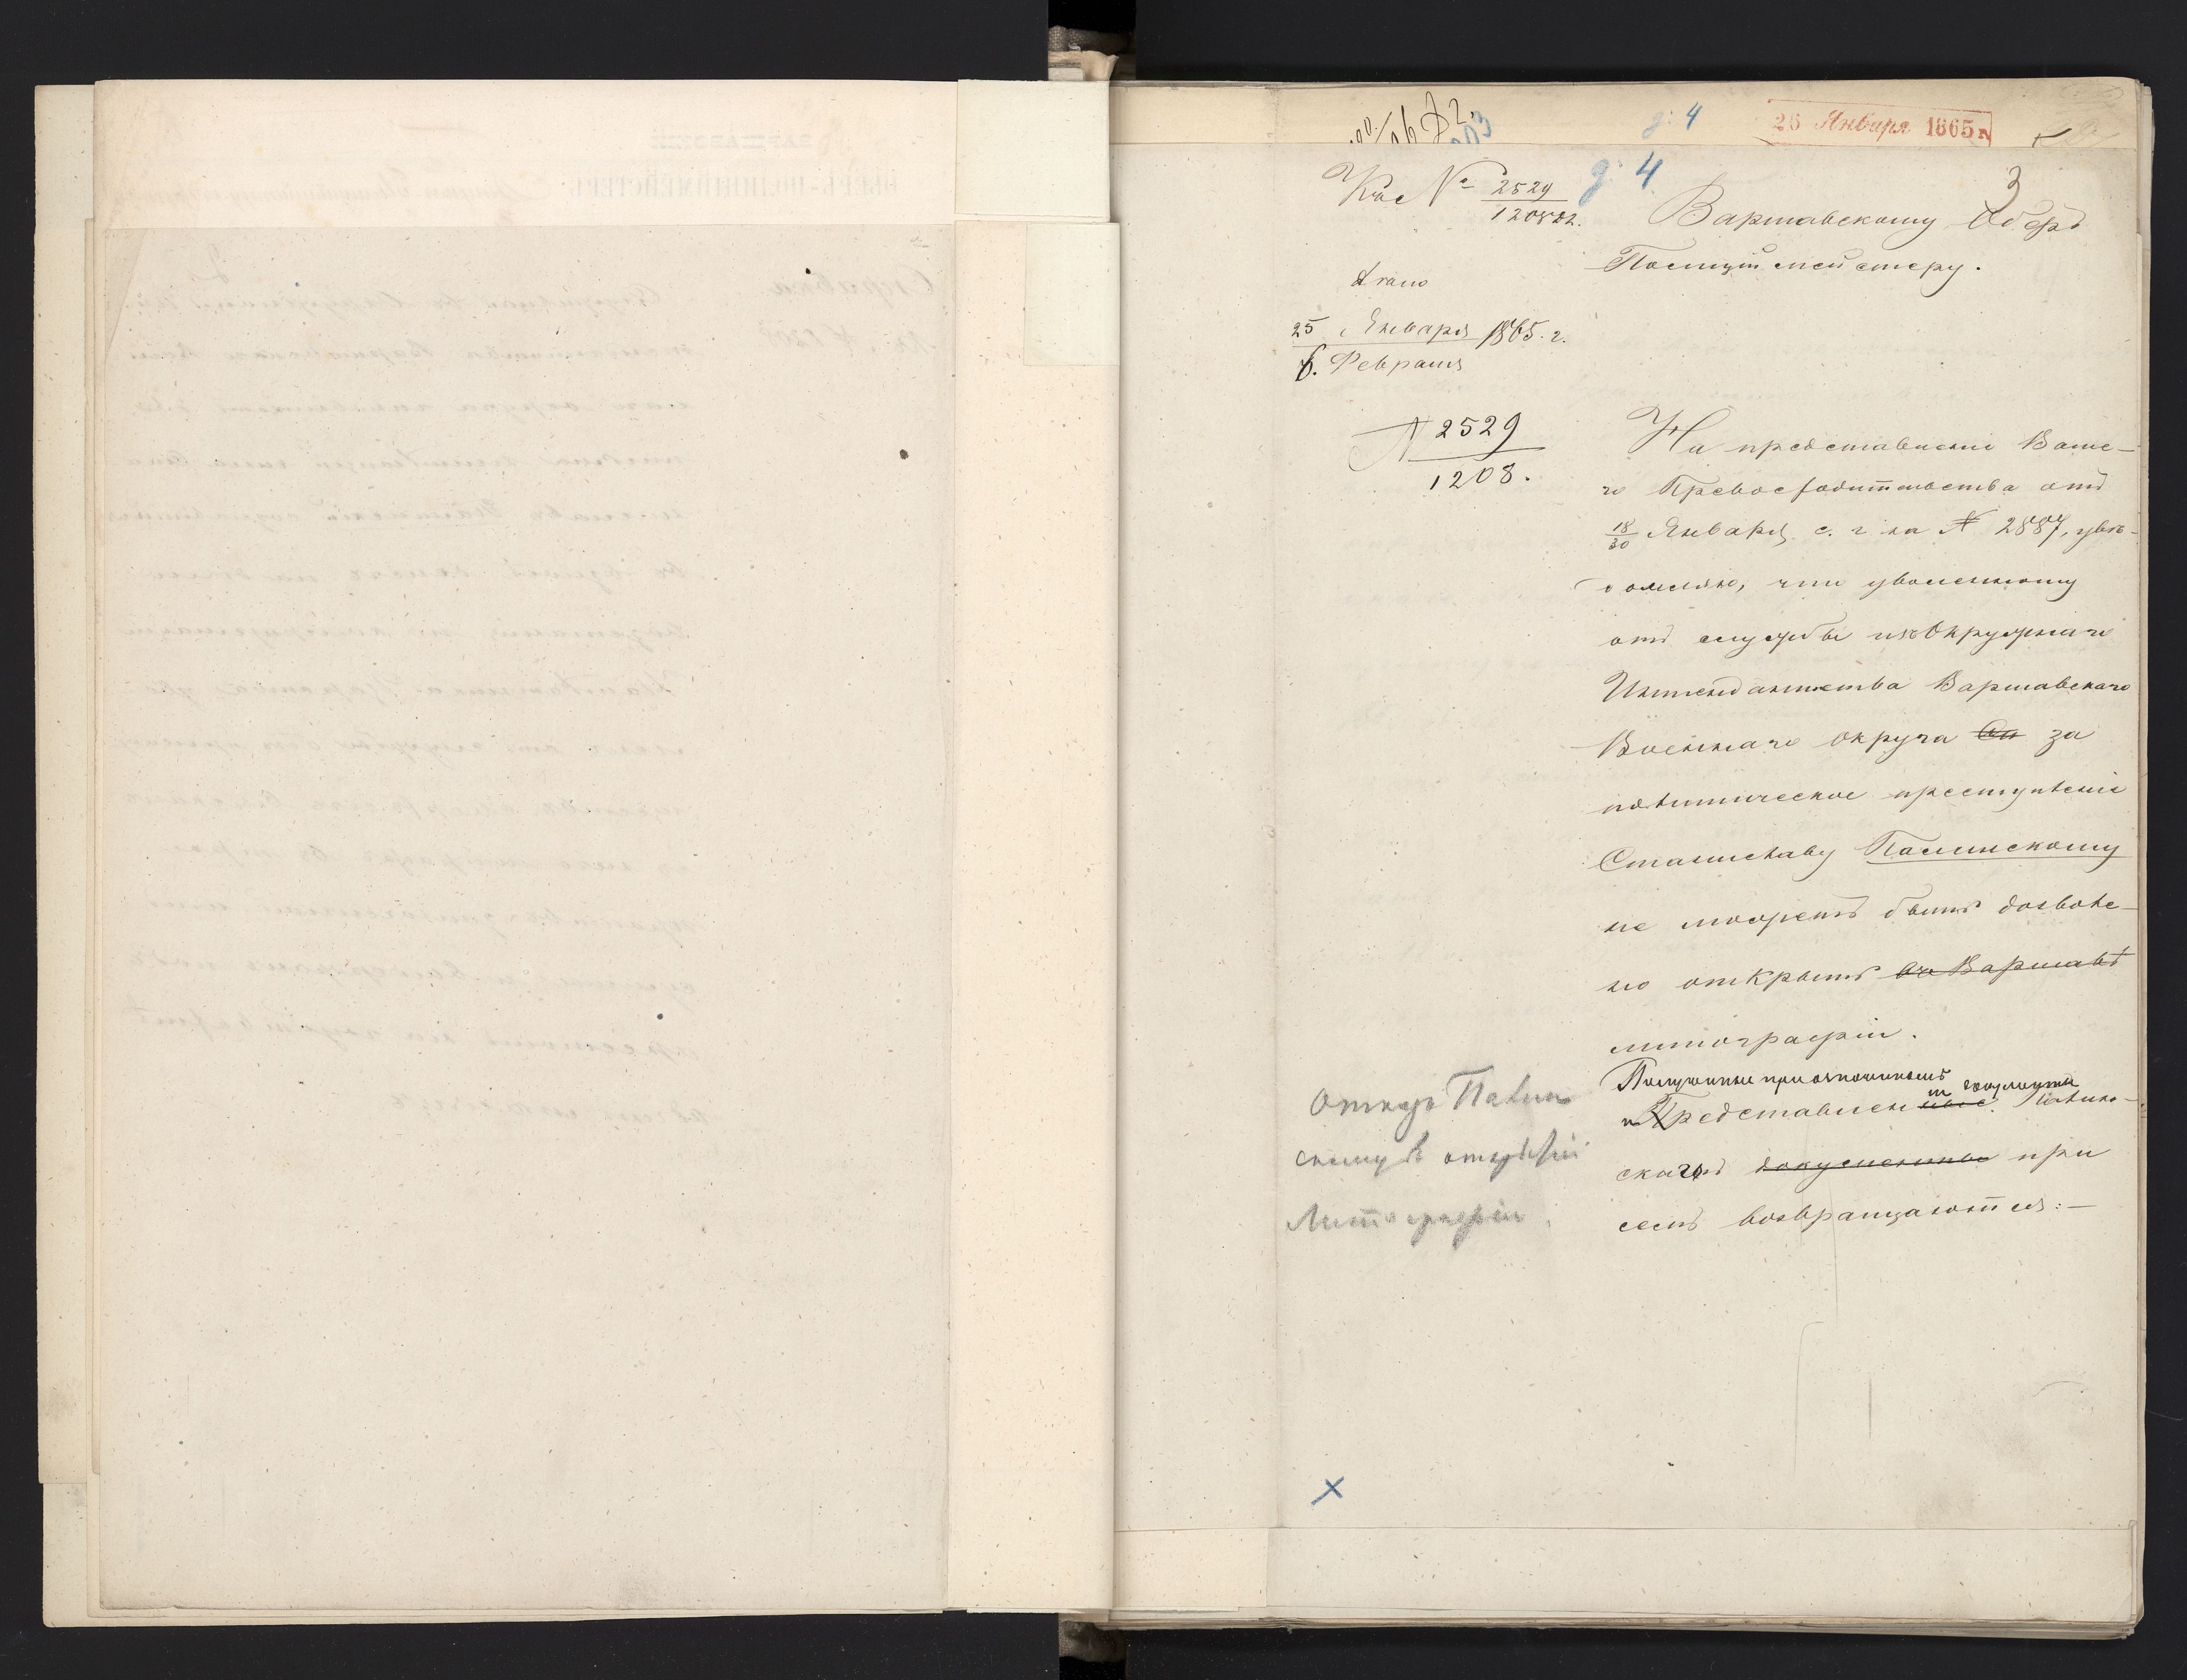 д. 4
26 Января 1865
3
Кас № 2529
д. 4
Варшавскому Оберъ
Полицiймейстеру.
25 Января 1865. г.
6. Февраля
№ 2529
1208.
На представленiе Ваше-
го Превосходительства отъ
18/30 Января с. г за № 2887, увѣ-
домляю, что уволенному
отъ службы изъ Окружнаго
Интендантства Варшавскаго
Военнаго округа за
политическое преступленiе
Станиславу Полинскому
не можетъ быть дозволе-
но открыть въ Варшавѣ
литографiи.
Полученные при означенномъ
представленiи документы Полин-
скаго документы при
семъ возвращаются:-
Отказъ Полин
скому въ открытiи
Литографiи